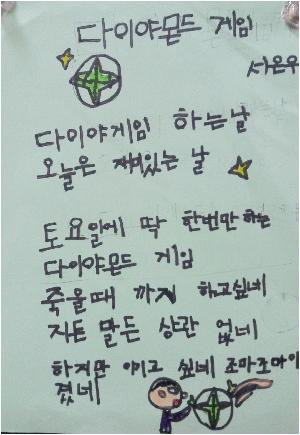 다이야몬드 게임
서은우
다이야게임 하는날
오늘은 재미있는 날
토요일에 딱 한번만 하는
다이야몬드 게임
죽을때 까지 하고싶네
지든 말든 상관 없네
하지만 이기고 싶네 조마조마이
겼네